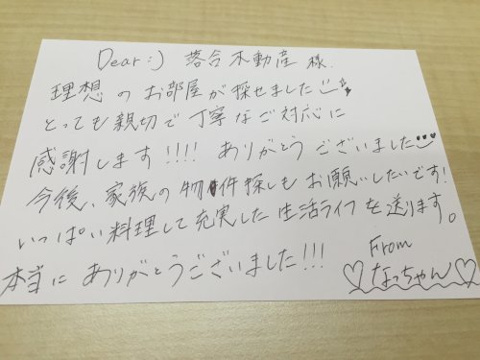 Dear :) 落合不動産 様
理想のお部屋が探せました
とっても親切で丁寧なご対応に
感謝します!!!! ありがとうございました
今後、家族の物件探しもお願いしたいです!
いっぱい料理して充実した生活ライフを送ります。
本当にありがとうございました!!!
From
♡なっちゃん♡